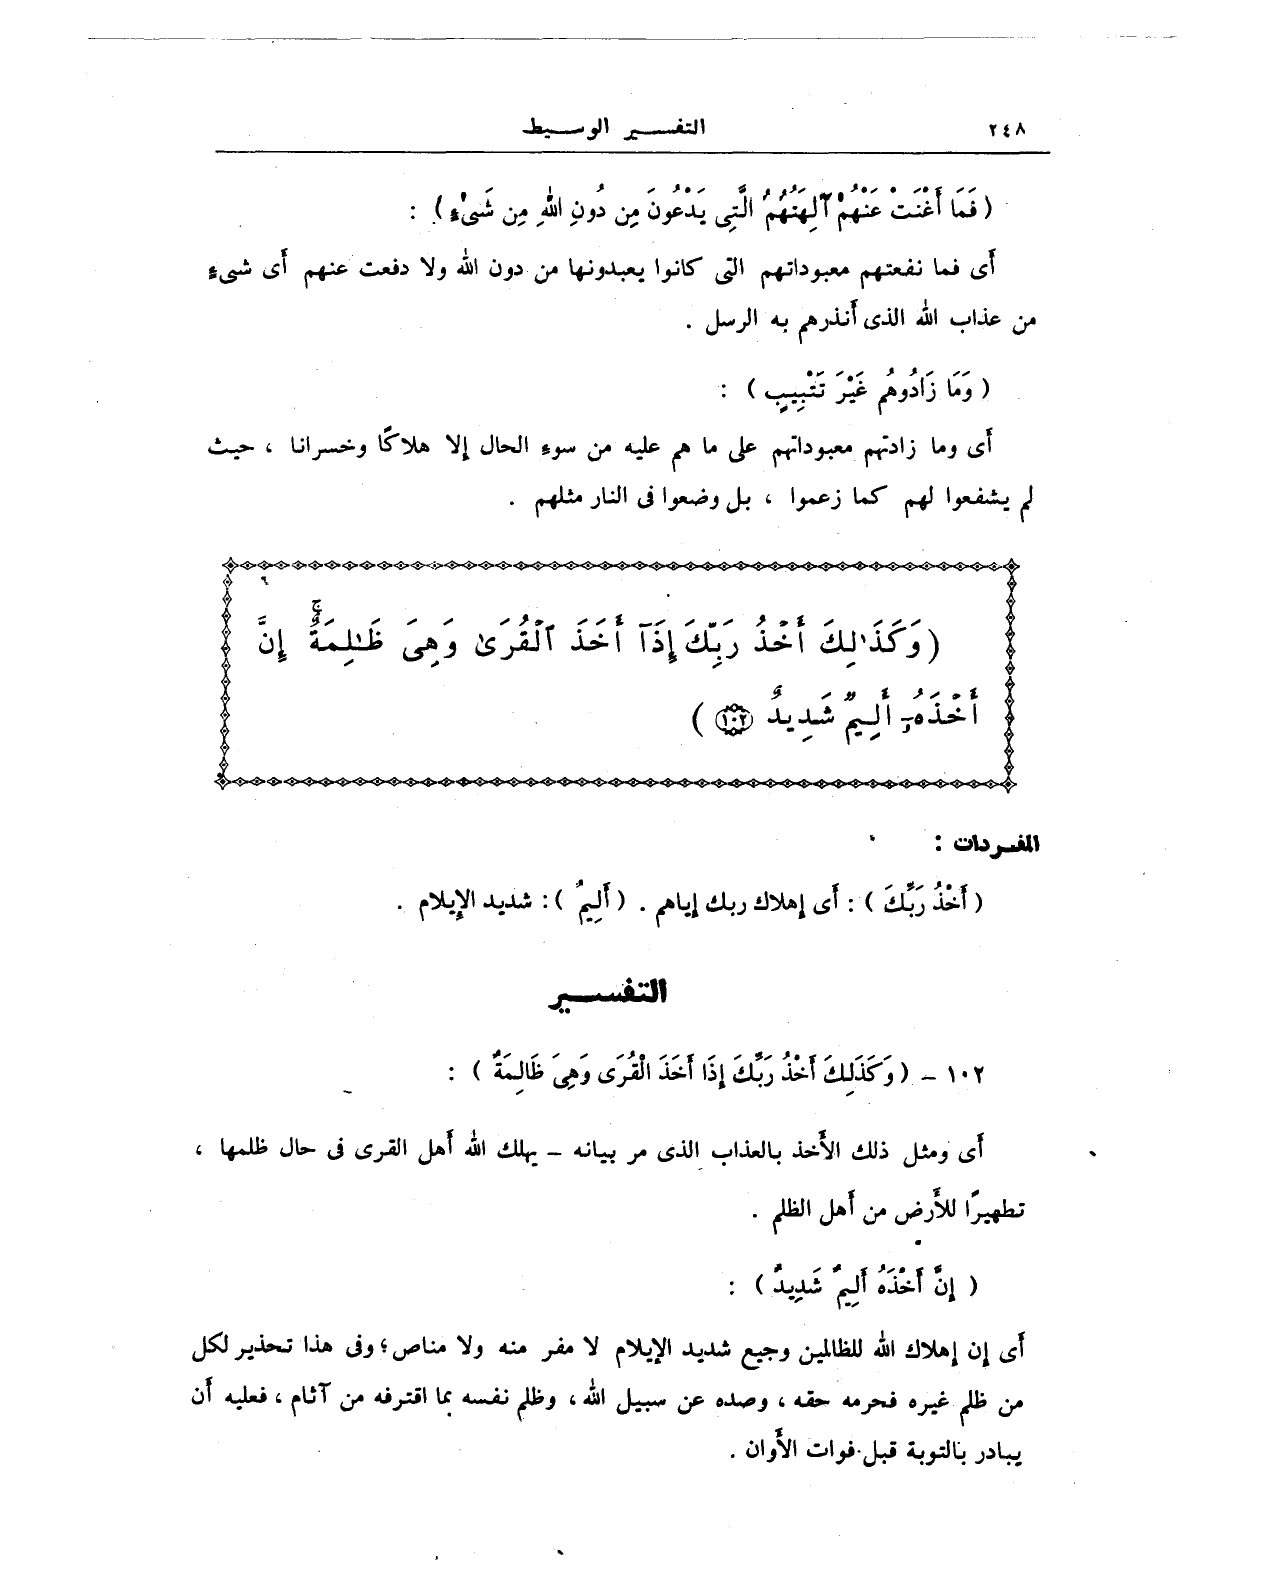 ٢٤٨
التفسير الوسيط
( فَمَا أَغْنَتْ عَنْهُمْ آلِهَتُهُمُ الَّتِى يَدْعُونَ مِن دُونِ اللهِ مِن شَىْءٍ ) :
أى فما نفعتهم معبوداتهم التى كانوا يعبدونها من دون الله ولا دفعت عنهم أى شىءٍ
من عذاب الله الذى أنذرهم به الرسل .
( وَمَا زَادُوهُم غَيْرَ تَتْبِيبٍ ) :
أى وما زادتهم معبوداتهم على ما هم عليه من سوءِ الحال إلا هلاكًا وخسرانا ، حيث
لم يشفعوا لهم كما زعموا ، بل وضعوا فى النار مثلهم .
( وَكَذَٰلِكَ أَخْذُ رَبِّكَ إِذَآ أَخَذَ ٱلْقُرَىٰ وَهِىَ ظَـٰلِمَةٌ ۚ إِنَّ
أَخْذَهُۥٓ أَلِيمٌ شَدِيدٌ ١٠٢ )
المفردات :
( أَخْذُ رَبِّكَ ) : أى إهلاك ربك إياهم . ( أَلِيمٌ ) : شديد الإيلام .
التفسير
١٠٢ - ( وَكَذَلِكَ أَخْذُ رَبِّكَ إِذَا أَخَذَ الْقُرَى وَهِىَ ظَالِمَةٌ ) :
أى ومثل ذلك الأخذ بالعذاب الذى مر بيانه - يهلك الله أهل القرى فى حال ظلمها ،
تطهيرًا للأرض من أهل الظلم .
( إِنَّ أَخْذَهُ أَلِيمٌ شَدِيدٌ ) :
أى إن إهلاك الله للظالمين وجيع شديد الإيلام لا مفر منه ولا مناص ؛ وفى هذا تحذير لكل
من ظلم غيره فحرمه حقه ، وصده عن سبيل الله ، وظلم نفسه بما اقترفه من آثام ، فعليه أن
يبادر بالتوبة قبل فوات الأوان .